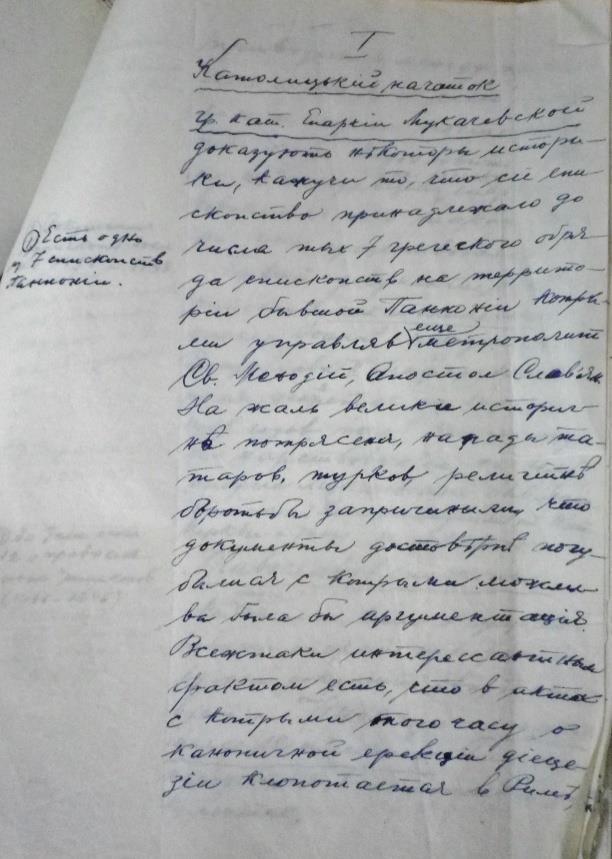 I
Католицькій начаток
гр. кат. Епархіи Мукачевской
доказуютъ нѣкоторы истори-
ки, кажучи то, что сіе епи-
скопство принадлежало до
числа тых 7 греческого обря-
да епископств на террито-
ріи бывшой Панноніи котры-
ми управляв еще метрополит
Св. Меѳодій, Апостол Слав'ян.
На жаль велики историч-
нѣ потрясеня, напады та-
таров, турков, религійнѣ
боротьбы запричинили, что
документы достовѣрнѣ погу-
билися с котрыми можли-
ва была бы аргументація.
Всежтаки интерессантным
фактом есть, что в актах
с котрыми того часу о
каноничной ерекціи діеце-
зіи клопотается в Римѣ,
Есть одно
з 7 епископств
Панноніи.